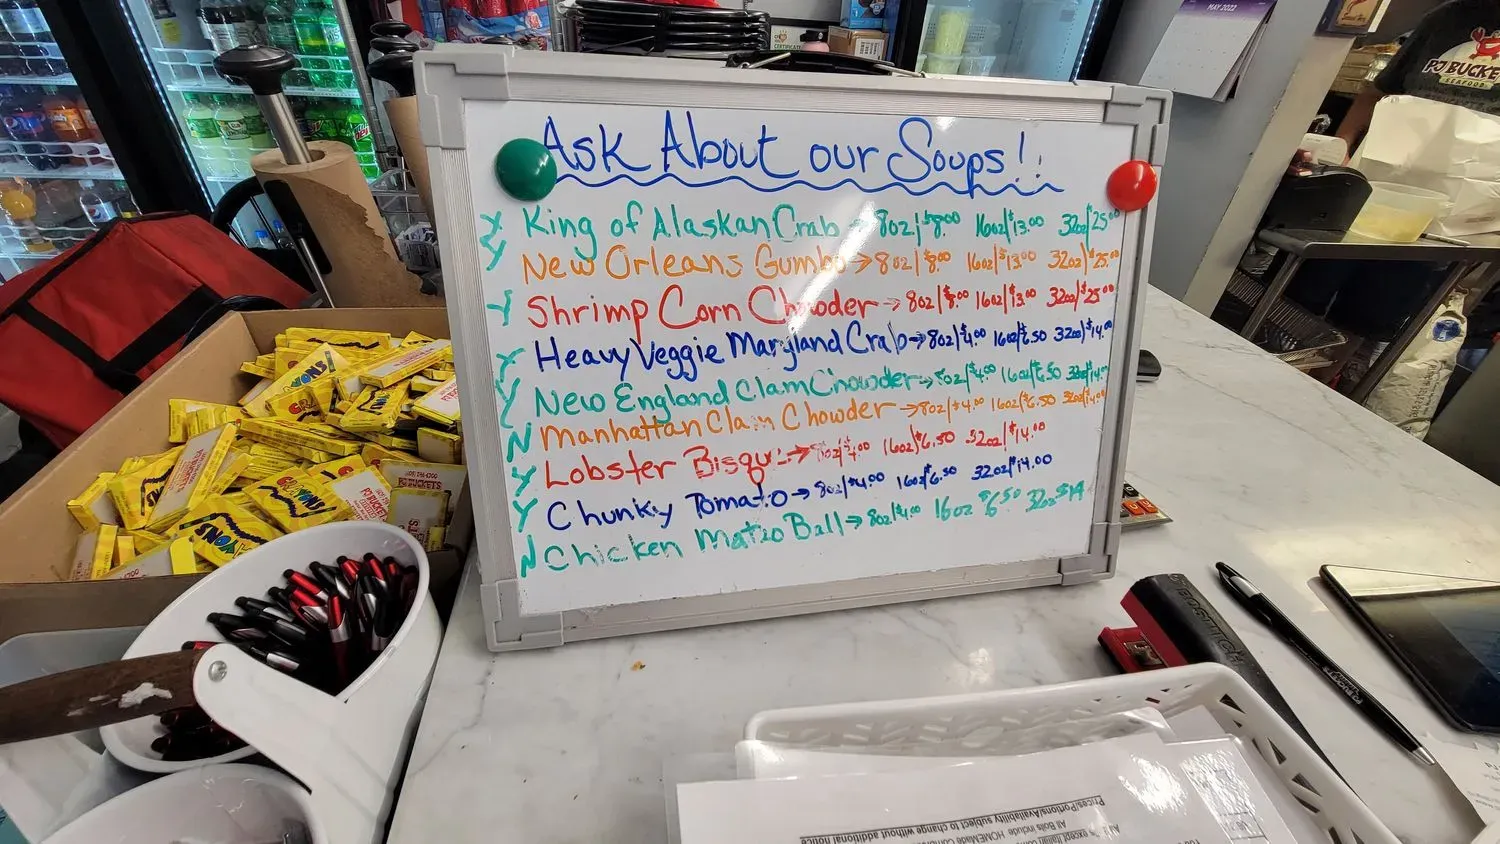 MAY 2022
CERTIFICATE
PJ BUCKETS
SEAFOOD
Ask About our Soups!!
Y King of Alaskan Crab → 8oz/$8.00 16oz/$13.00 32oz/$25.00
Y New Orleans Gumbo → 8oz/$8.00 16oz/$13.00 32oz/$25.00
Y Shrimp Corn Chowder → 8oz/$8.00 16oz/$13.00 32oz/$25.00
Y Heavy Veggie Maryland Crab → 8oz/$4.00 16oz/$6.50 32oz/$14.00
Y New England Clam Chowder → 8oz/$4.00 16oz/$6.50 32oz/$14.00
N Manhattan Clam Chowder → 8oz/$4.00 16oz/$6.50 32oz/$14.00
Y Lobster Bisque → 8oz/$4.00 16oz/$6.50 32oz/$14.00
Y Chunky Tomato → 8oz/$4.00 16oz/$6.50 32oz/$14.00
N Chicken Matzo Ball → 8oz/$4.00 16oz $6.50 32oz $14
CRAYONS
PJ BUCKETS
Prices/Portions/Availability subject to change without additional notice